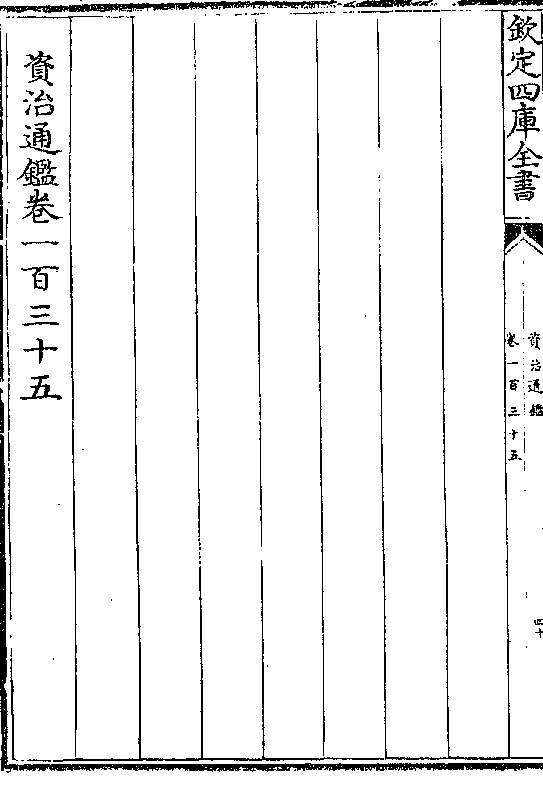 欽定四庫全書
資治通鑑
卷一百三十五
四十
資治通鑑卷一百三十五